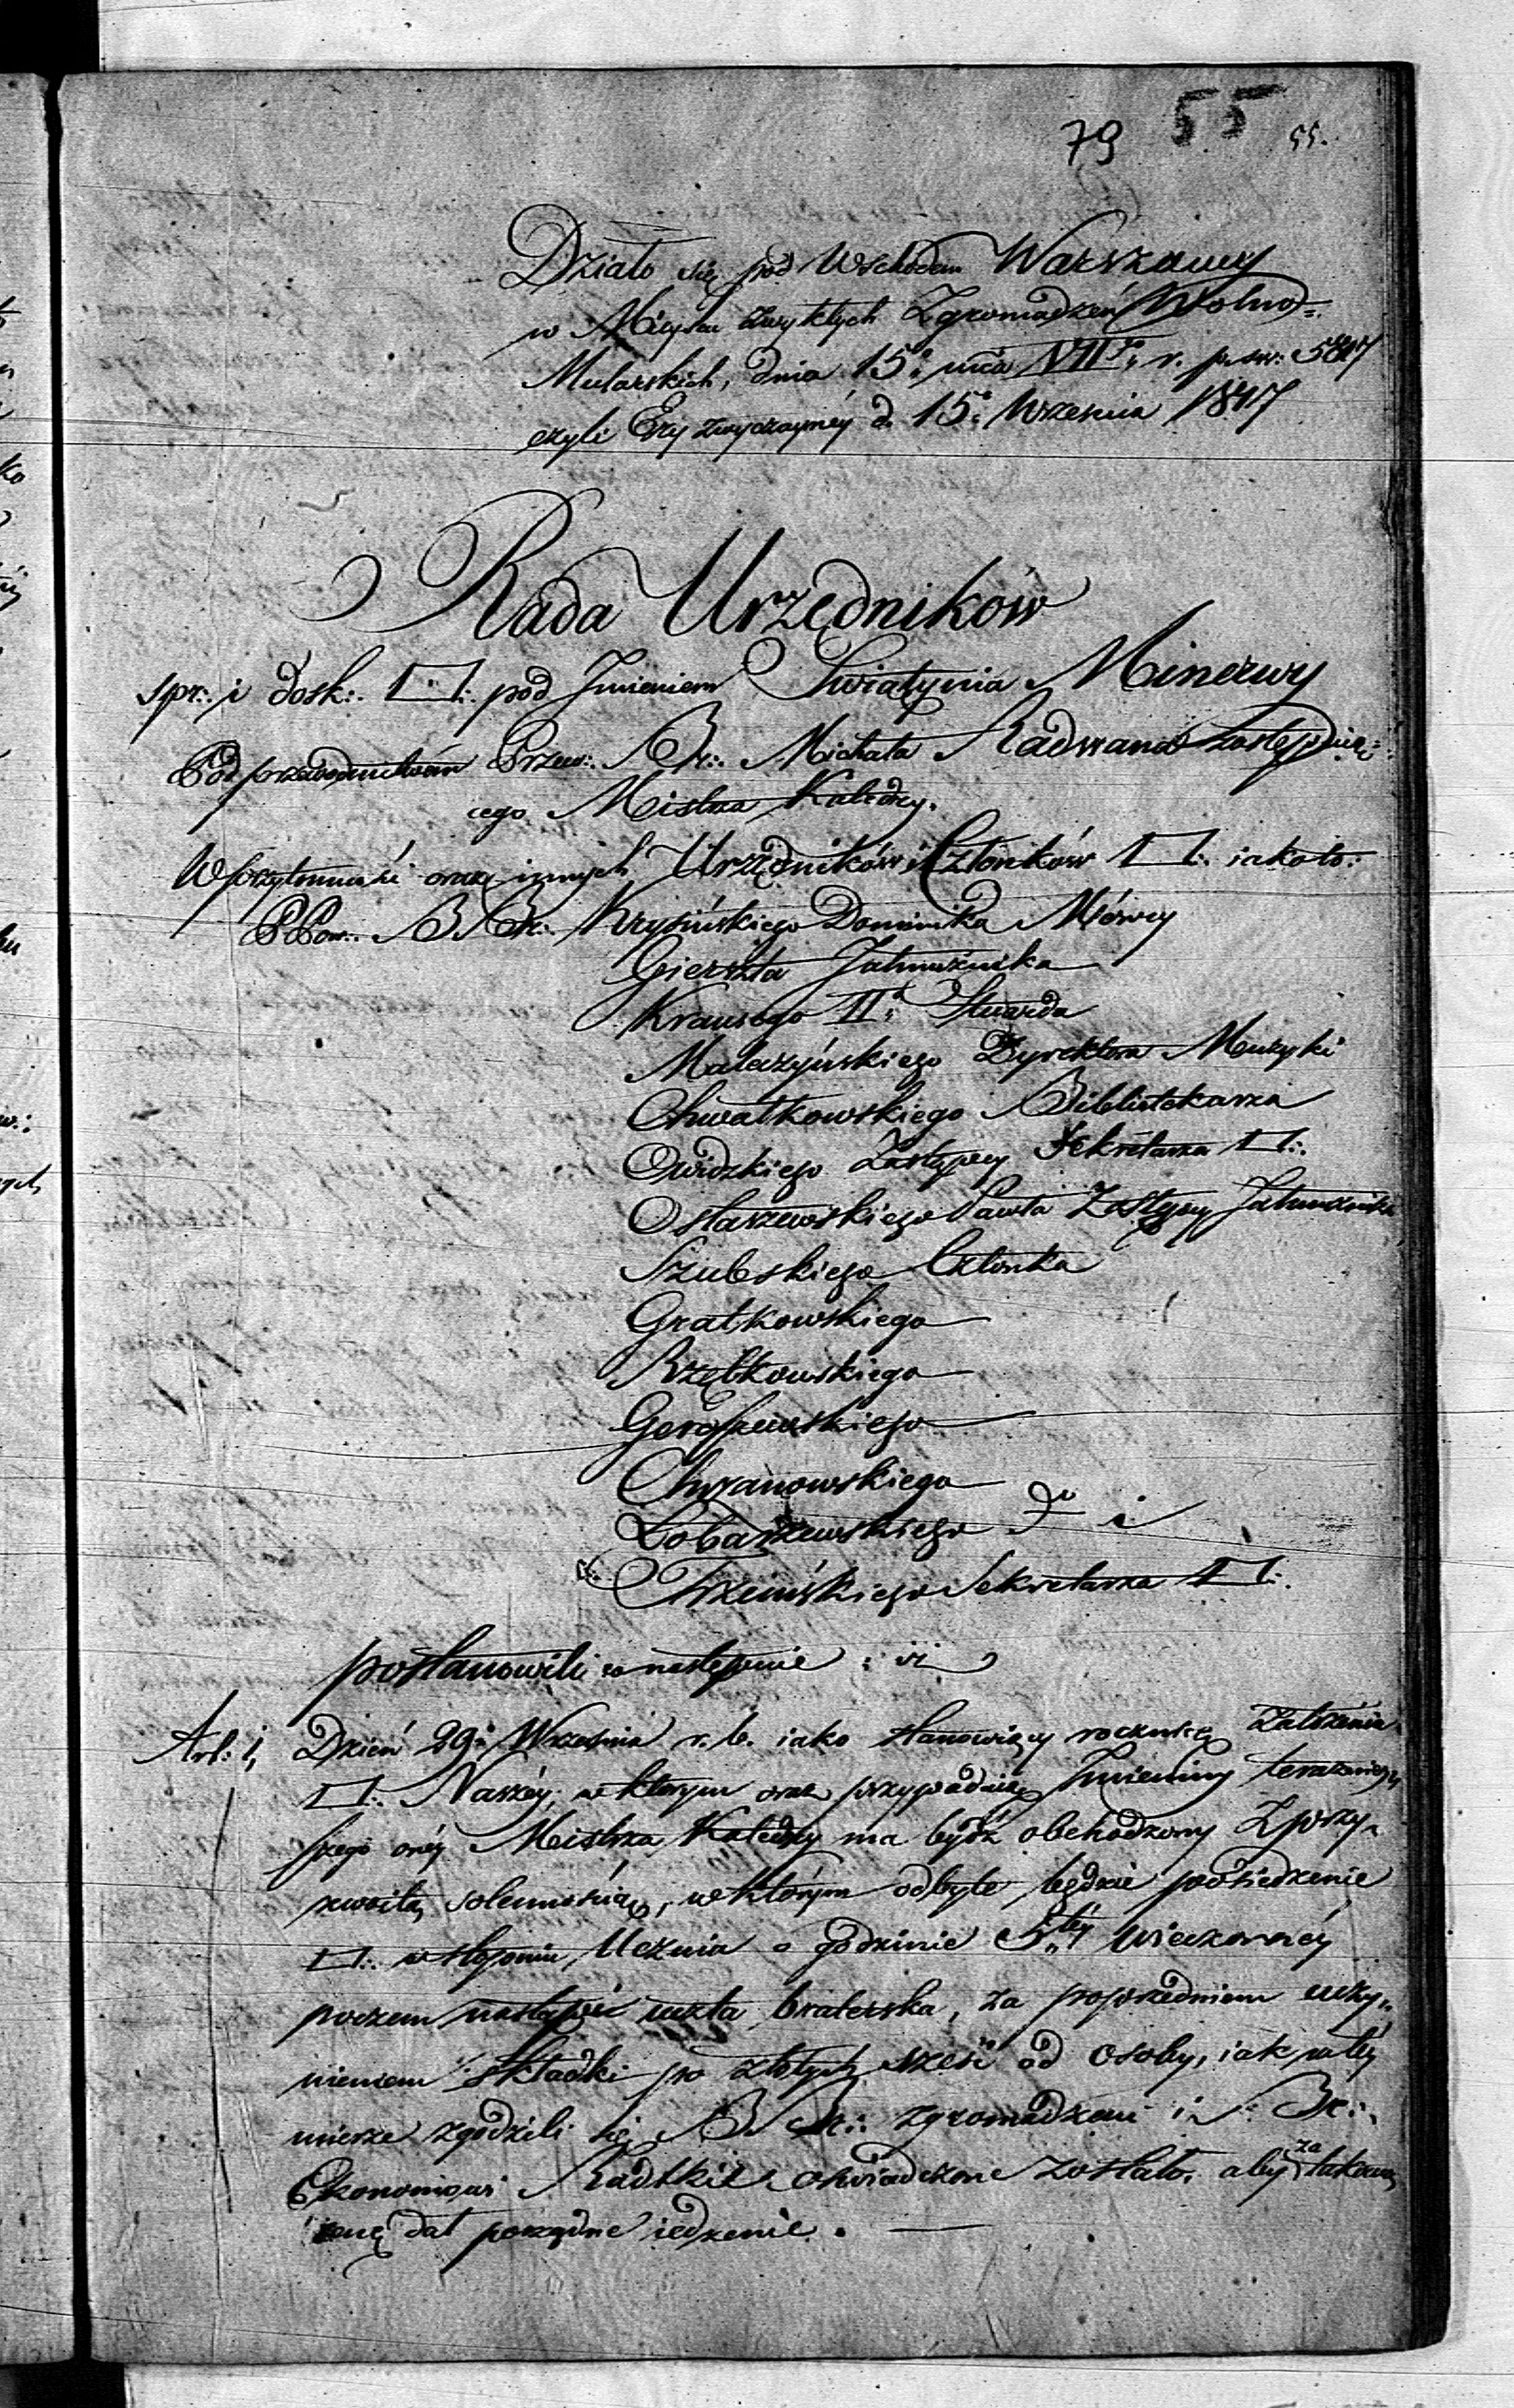 79 55 55.
Działo się pod Wschodem Warszawy
w Mieyscu zwykłych Zgromadzeń Wolno=
Mularskich, dnia 15º mca VIIº r. p. sw: 5817
czyli Ery zwyczayney d. 15º Wrzesnia 1817
Rada Urzędników
spr:. i dosk:. □:. pod Jmieniem Swiątynia Minerwy
Pod przewodnictwem Przew:. Br:. Michała Radwana zastępuią=
cego Mistrza Katedry.
W przytomności oraz innych Urzędników i Członków □:. iakoto:
PPow:. BBr:. Krysińskiego Dominika Mówcy
Gierszta Jałmużnika
Krausego IIº Stuarda
Malczyńskiego Dyrektora Muzyki
Chwałkowskiego Bibliotekarza
Owidzkiego Zastępcy Sekretarza □:.
Ostaszewskiego Pawła Zastępcy Jałmużnika
Szubskiego Członka
Gratkowskiego
Rzętkowskiego
Chrzanowskiego
Łobarzewskiego dº i
Trzcińskiego Sekretarza □:.
postanowili co następuie :
Art: 1, Dzień 29º Wrzesnia r. b. iako stanowiący rocznicę Założenia
□:. Naszéy, w którym oraz przypadaią Jmieniny teraźniey„
szego onéy Mistrza Katedry ma bydź obchodzony z przy„
zwoitą solennością, w którym odbyte będzie posiedzenie
□:. w stopniu Ucznia o godzinie 5„téy wieczornéy
poczem nastąpi uczta braterska, za poprzedniem uczy„
nieniem składki po złotych sześć od osoby, iak na téy
mierze zgodzili się BBr:. zgromadzeni i Br:.
Ekonomowi Radtkie oświadczone zostało, aby za takową
cenę dał porządne iedzenie. —